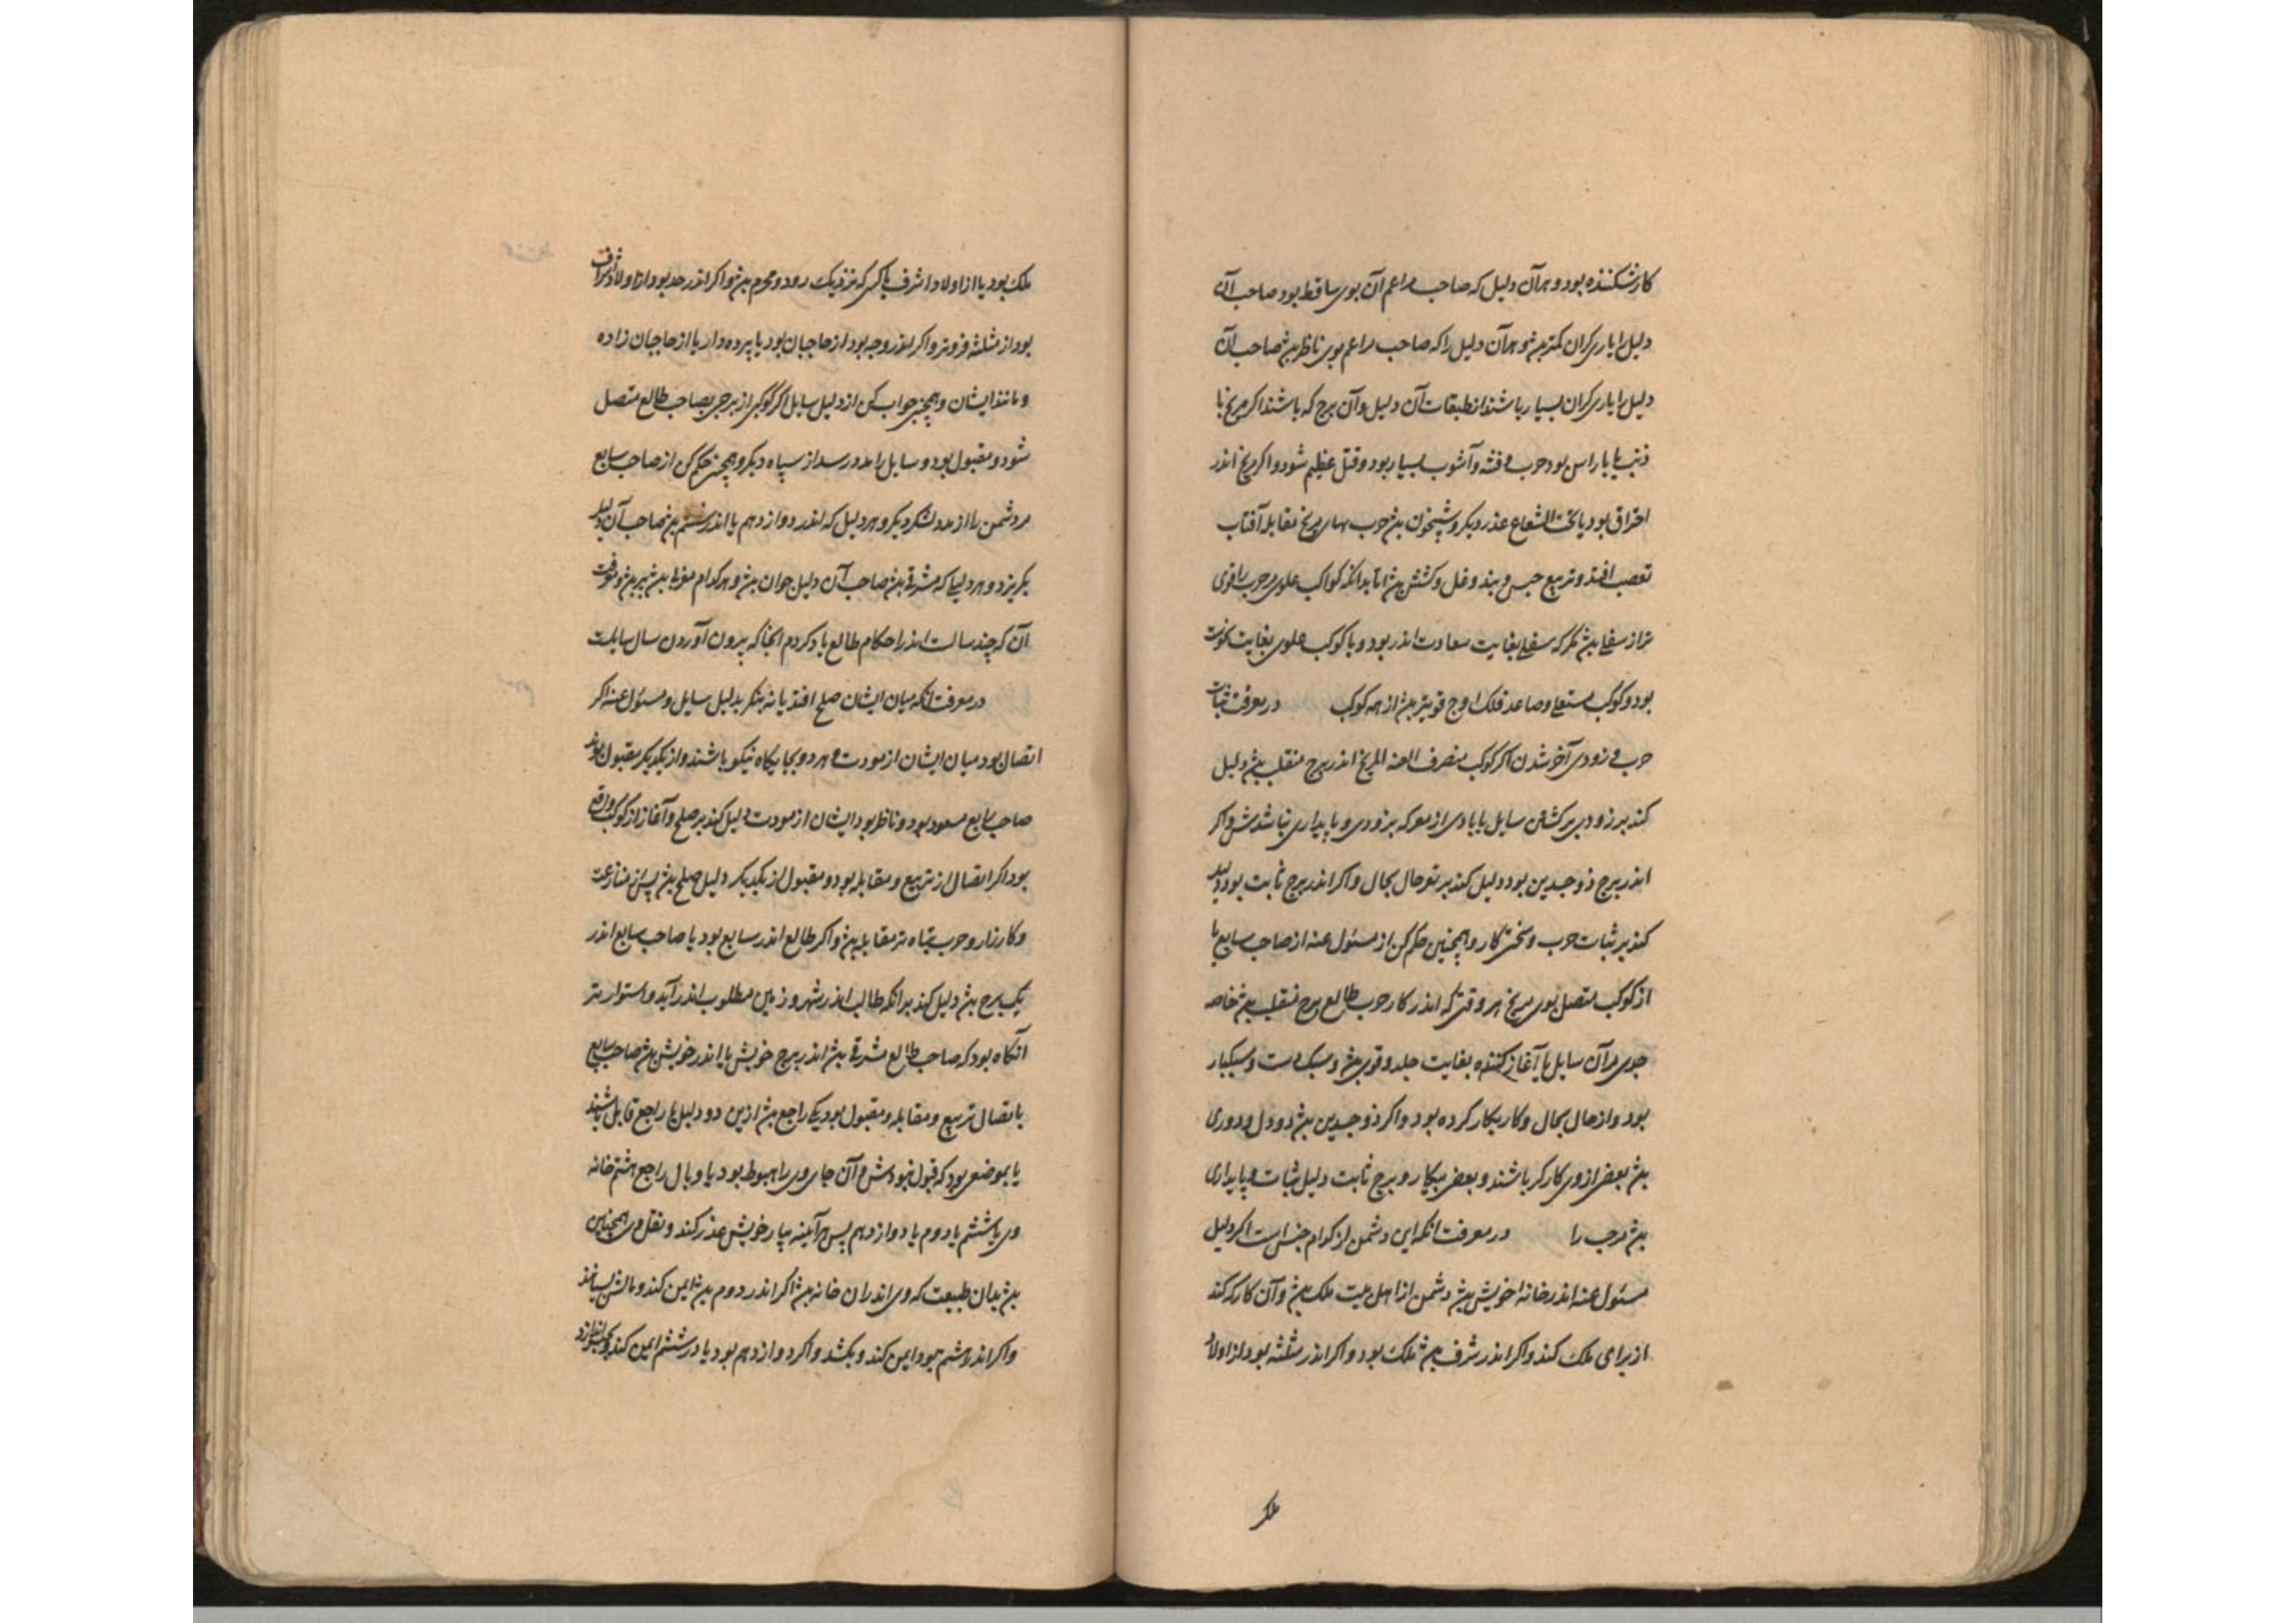 کار شکننده بود و هر آن دلیل که صاحب مراعم آن بوی ساقط بود صاحب آن
دلیل را یاری کران کمتر بیش و هر آن دلیل را که صاحب مراعم بوی ناظر بیش صاحب آن
دلیل را یاری کران بسیار باشند از طبقات آن دلیل و آن برج که باشند اکر مریخ با
ذنب یا با راس بود حرب و فتنه و آشوب بسیار بود و قتل عظیم شود و اکر مریخ اندر
احتراق بود یا تحت الشعاع غدر دیکر و شبیخون بیش حرب مریخ مقابله آفتاب
تعصب افتد و تربیع حبس و بند و غل و کشش بیش اما بدانکه کواکب علوی حرب را قوی
تر از سفلی بیش مکر که سفلی بغایت سعادت اندر بود و با کوکب علوی بغایت نحوست
بود و کوکب مستعلی و صاعد فلک اوج قویتر بیش از همه کوکب در معرفت ثبات
حرب و زودی آخر شدن اکر کوکب منصرف العنه المریخ اندر برج منقلب بیش دلیل
کند بر زودی برکشتن سایل یا بادی از معرکه بزودی و پایداری نباشدش و اکر
اندر برج ذوجسدین بود دلیل کند بر تو حال بحال و اکر اندر برج ثابت بود دلیل
کند بر ثبات حرب و سختی کار و همچنین حکم کن از مسئول عنه از صاحب سابع یا
از کوکب متصل بوی مریخ هر وقتی که اندر کار حرب طالع برج منقلب بیش خاصه
جوی مر آن سایل یا آغاز کننده بغایت جلد و قوی بیش و سبک دست و سبکبار
بود و از حال بحال و کار بیکار کرده بود و اکر ذوجسدین بیش دو دل و دوری
بیش بعضی از وی کارکر باشند و بعضی بیکار و برج ثابت دلیل ثبات و پایداری
بیش مر حرب را در معرفت انکه این دشمن از کدام جنس است اکر دلیل
مسئول عنه اندر خانه خویش بیش دشمن از اهل بیت ملک بیش و آن کار که کند
از برای ملک کند و اکر اندر شرف بیش ملک بود و اکر اندر مثلثه بود از اولاد
ملک
ملک بود یا از اولاد اشرف یا کسی که نزدیک رود و محرم بیش و اکر اندر حد بود از اولاد اشراف
بود از مثلثه فروتر و اکر اندر وجه بود از حاجبان بود یا پرده دار یا از حاجبان زاده
و مانند ایشان و همچنین جواب کن از دلیل سایل اکر کوکبی از برجی بصاحب طالع متصل
شود و مقبول بود و سایل را مدد رسد از سپاه دیکر و همچنین حکم کن از صاحب سابع
مر دشمن را از مدد لشکر دیکر و هر دلیل که اندر دوازدهم یا اندر ششم بیش صاحب آن دلیل
بکریزد و هر دلیلی که مشرقی بیش صاحب آن دلیل جوان بیش و هر کدام مغربی بیش پیر بیش و معرفت
آن که چند سالست اندر احکام طالع یاد کردم آنجا که بیرون آوردن سال سایلست
در معرفت انکه میان ایشان صلح افتد یا نه بنکر بدلیل سایل و مسئول عنه اکر
اتصال بود میان ایشان از مودت و هر دو بجایکاه نیکو باشند و از یکدیکر مقبول بوند
صاحب سابع مسعود بود و ناظر بود ایشان از مودت دلیل کند بر صلح و آغاز از کوکب واقع
بود اکر اتصال از تربیع و مقابله بود و مقبول از یکدیکر دلیل صلح بیش پس از منازعت
و کارزار و حرب تباه تر مقابله بیش و اکر طالع اندر سابع بود یا صاحب سابع اندر
یک برج بیش دلیل کند بر انکه طالب اندر شهر و زمین مطلوب اندر آید و استوارتر
آنکاه بود که صاحب طالع مشرقی بیش اندر برج خویش یا اندر خویش بیش صاحب سابع
با تصال تربیع و مقابله و مقبول بود یکی راجع بیش ازین دو دلیل یا راجع قابل باشند
یا بموضعی بود که قبول نبودش و آن جای وی را هبوط بود یا وبال راجع هشتم خانه
وی یا ششم یا دوم یا دوازدهم پس هرآینه بیار خویش غدر کند و نقل وی همچنین
بیش بدان طبیعت که وی اندران خانه بیش اکر اندر دوم بیش ایمن کند و مالش بستاند
و اکر اندر هشتم بود ایمن کند و بکشد و اکر دوازدهم بود یا در ششم ایمن کند و